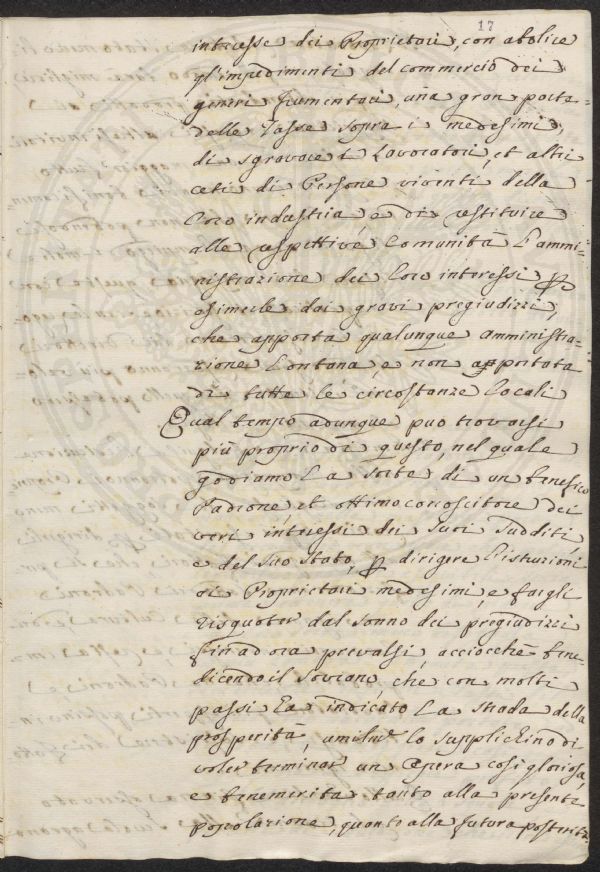 17
interesse dei Proprietari, con abolire
gl'impedimenti del commercio dei
generi frumentaci, una gran parte
delle Tasse sopra i medesimi,
di sgravare i Lavoratori, et altri
ceti di Persone viventi della
loro industria e di restituire
alle respettive Comunità l'ammi-
nistrazione dei loro interessi p
esimerle dai gravi pregiudizzi,
che apporta qualunque amministra-
zione lontana e non apportata
di tutte le circostanze locali
Qual tempo adunque può trovarsi
più proprio di questo, nel quale
godiamo la sorte di un benefico
Padrone et ottimo conoscitore dei
veri interessi dei suoi sudditi,
e del suo stato, p dirigere l'istruzioni
ai Proprietari medesimi, e fargli
risquoter dal sonno dei pregiudizzi
fin ad ora prevalsi, acciocchè bene-
dicendo il Sovrano, che con molti
passi ha indicato la strada della
prosperità, umilmte lo supplichino di
voler terminar un Opera così gloriosa,
e benemerita tanto alla presente
popolazione, quanto alla futura posterità.